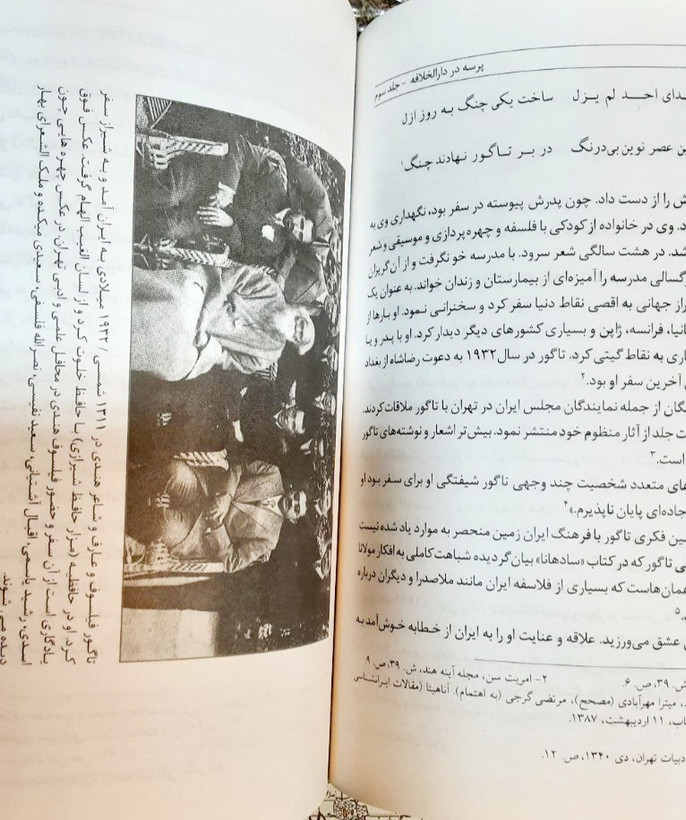 پرسه در دارالخلافه - جلد سوم
احـد لم یـزل ساخت یکی چنگ به روز ازل
عصر نوین بی‌درنگ در بـر تـاگـور نهادند چنگ۱
را از دست داد. چون پدرش پیوسته در سفر بود، نگهداری وی به
وی در خانواده از کودکی با فلسفه و چهره‌پردازی و موسیقی و شعر
شد. در هشت سالگی شعر سرود. با مدرسه خو نگرفت و از آن گریزان
مدرسه را آمیزه‌ای از بیمارستان و زندان خواند. به عنوان یک
جهانی به اقصی نقاط دنیا سفر کرد و سخنرانی نمود. او بارها از
فرانسه، ژاپن و بسیاری کشورهای دیگر دیدار کرد. او با پدر و یا
به نقاط گیتی کرد. تاگور در سال ۱۹۳۲ به دعوت رضاشاه از بغداد
آخرین سفر او بود.۲
از جمله نمایندگان مجلس ایران در تهران با تاگور ملاقات کردند.
جلد از آثار منظوم خود منتشر نمود. بیش‌تر اشعار و نوشته‌های تاگور
است.۳
متعدد شخصیت چند وجهی تاگور شیفتگی او برای سفر بود او
جاده‌ای پایان ناپذیرم.»۴
فکری تاگور با فرهنگ ایران زمین منحصر به موارد یاد شده نیست
تاگور که در کتاب «سادهانا» بیان گردیده شباهت کاملی به افکار مولانا
همان‌هاست که بسیاری از فلاسفه ایران مانند ملاصدرا و دیگران درباره
۵
عشق می‌ورزید. علاقه و عنایت او را به ایران از خطابه خوش‌آمد به
ش. ۳۹، ص. ۶. ۲- امریت سن، مجله آینه هند، ش. ۳۹، ص. ۹
میترا مهرآبادی (مصحح)، مرتضی گرجی (به اهتمام). آناهیتا (مقالات ایرانشناسی
۱۱ اردیبهشت، ۱۳۸۷.
ادبیات تهران، دی ۱۳۴۰، ص. ۱۲.
تاگور فیلسوف و عارف و شاعر هندی در ۱۳۱۱ شمسی / ۱۹۳۲ میلادی به ایران آمد و به شیراز سفر
کرد. او در حافظیه (مزار حافظ شیرازی) با حافظ خلوت کرد و از لسان الغیب الهام گرفت. عکس فوق
یادگاری است از آن سفر و حضور فیلسوف هندی در محافل علمی و ادبی تهران. در عکس چهره هایی چون
اسدی، رشید یاسمی، اقبال آشتیانی، سعید نفیسی، نصرالله فلسفی، سعیدی میکده و ملک الشعرای بهار
دیده می شوند.